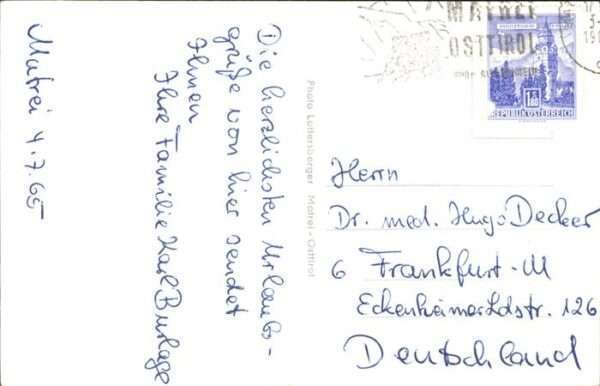 Matrei 4.7.65
Die herzlichsten Urlaubs-
grüße von hier sendet
Ihnen
Ihre Familie Karl Burlage
Photo Lottersberger Matrei-Osttirol
MATREI
OSTTIROL
1.80
REPUBLIK ÖSTERREICH
Herrn
Dr. med. Hugo Decker
6 Frankfurt-M
Eckenheimer Ldstr. 126
Deutschland